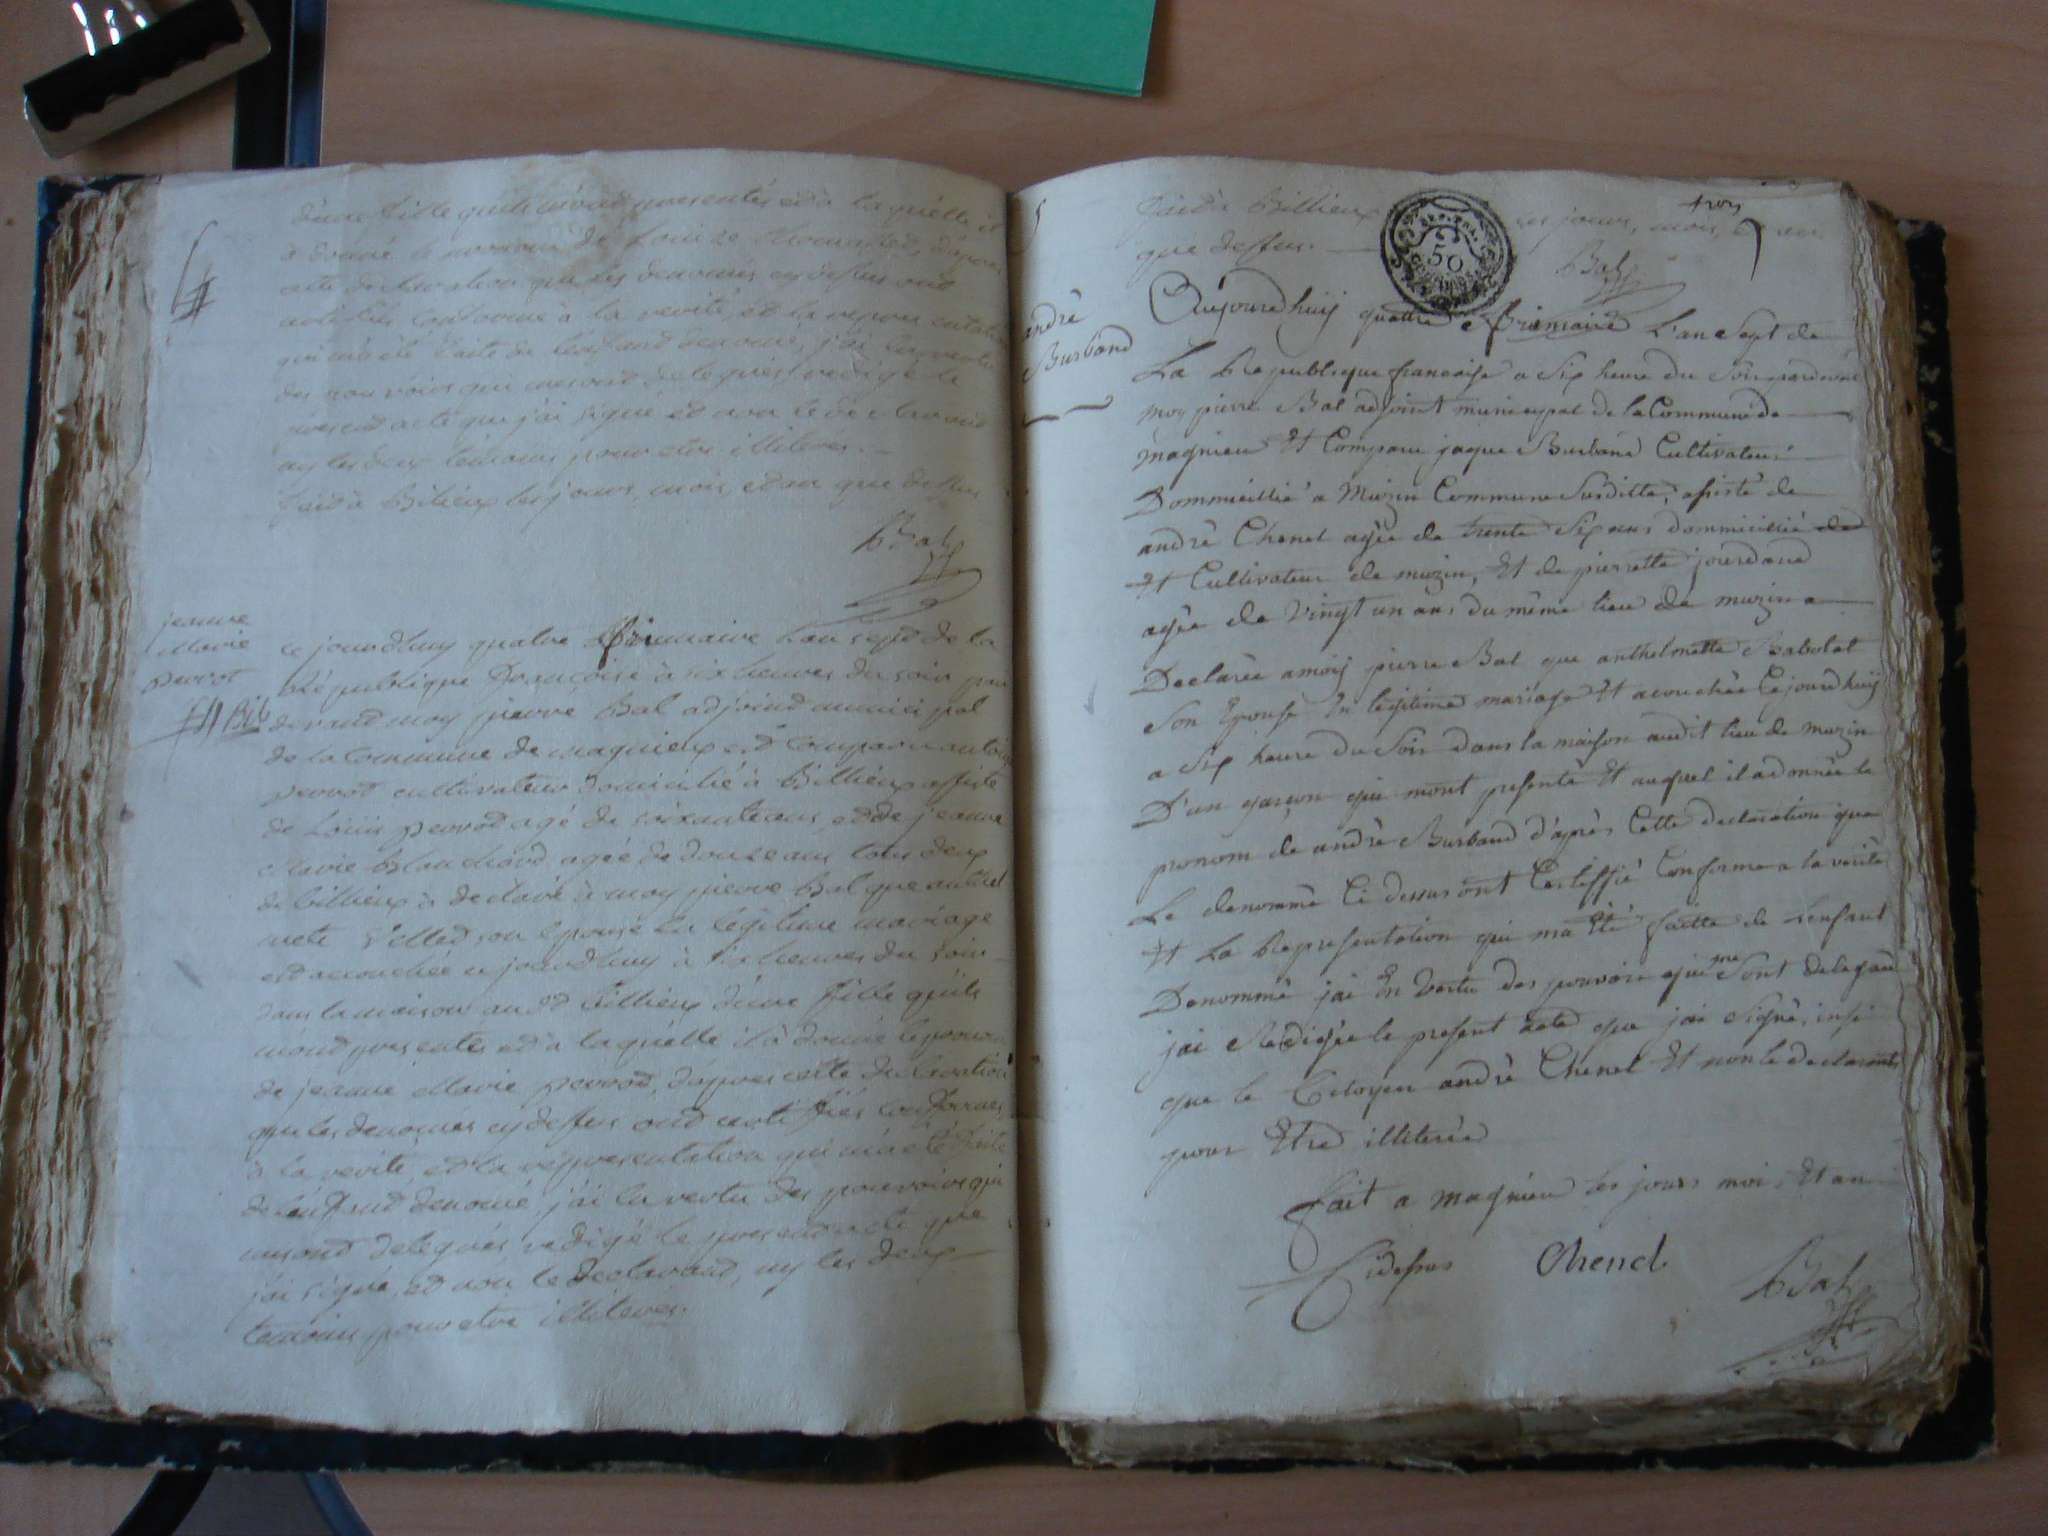 d'une fille qu'ils m'ont présentés et à laquelle il
à donné le prenom de Louise
cette declaration que les denomés cy dessus ont
certifiés conforme à la verité, et la
qui m'a été faite de l'enfant denomé, j'ai en vertu
des pouvoirs qui me sont delegués redigé le
présent acte que j'ai signé et non le declarant
ny les deux temoins pour etre illiteres.
fait à Billieux les jours, mois, et an que dessus
Bal
jeanne
Marie
perrot
ce jourdhuy quatre frimaire l'an sept de la
République françoise à six heures du soir par
devant moy pierre Bal adjoind municipal
de la Commune de magnieux est comparu antoine
perrot cultivateur domicilié à Billieux assisté
de Louis perrod agé de soixante ans, et de jeanne
Marie Blanchard agée de douze ans tous deux
de billieux à declaré à moy pierre Bal que anthel
mete son épouse en légitime mariage
est accouchée ce jourdhuy à six heures du soir
dans la maison audt Billieux d'une fille qu'ils
m'ont presentés et à laquelle il à donné le prenom
de jeanne Marie perrod, d'apres cette declaration
que les denomés cy dessus ont certiffiés conformes
à la verité, et la représentation qui m'a été faite
de l'enfand denomé, j'ai en vertu des pouvoirs qui
me sont delegués redigé le present acte que
j'ai signé, et non le declarand, ny les deux
temoins pour etre illiteres.
trois
fait à Billieux les jours, mois, et an
que dessus.
50
Bal
andré
Burband
Aujourdhuij quattre frimaire L'an Sept de
La Republique francaise a Six heure du Soir pardevant
moy pierre Bal adjoint municipal de la Commune de
magnieu Et Comparu jaque Burband Cultivateur
Dommicillié a Muzin Commune Susditte, assisté de
andré Chenel agée de trente Six ans dommicillié de
Et Cultivateur de muzin, Et de pierrette jourdand
agée de Vingt un ans du même lieu de muzin a
Declarée a moij pierre Bal que anthelmette Rabolat
Son Epouse En legitime mariage Et acouchée Cejourdhuij
a Six heure du Soir dans la maison audit lieu de muzin
D'un garçon qui mont presenté Et auquel il a donnée le
pronom de andré Burband d'après Cette declaration que
Le denommé Ci dessus ont Certiffié Conforme a la verité
Et La Representation qui ma Eté faitte de Lenfant
Denommé jai En Vertu des pouvoirs qui me Sont delegué
jai Redigée le present acte que jai Signé, insi
que le Citoyen andré Chenel Et non le declarant
pour Etre illiterée
fait a magnieu les jours mois, Et an
Cidessus Chenel
Bal